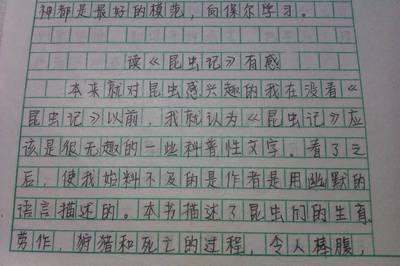 神都是最好的模范，向保尔学习。
读《昆虫记》有感
本来就对昆虫感兴趣的我在没看《
昆虫记》以前，我就认为《昆虫记》应
该是很无趣的一些科普性文字。看了之
后，使我始料不及的是作者是用幽默的
语言描述的。本书描述了昆虫们的生育，
劳作，狩猎和死亡的过程，令人捧腹，